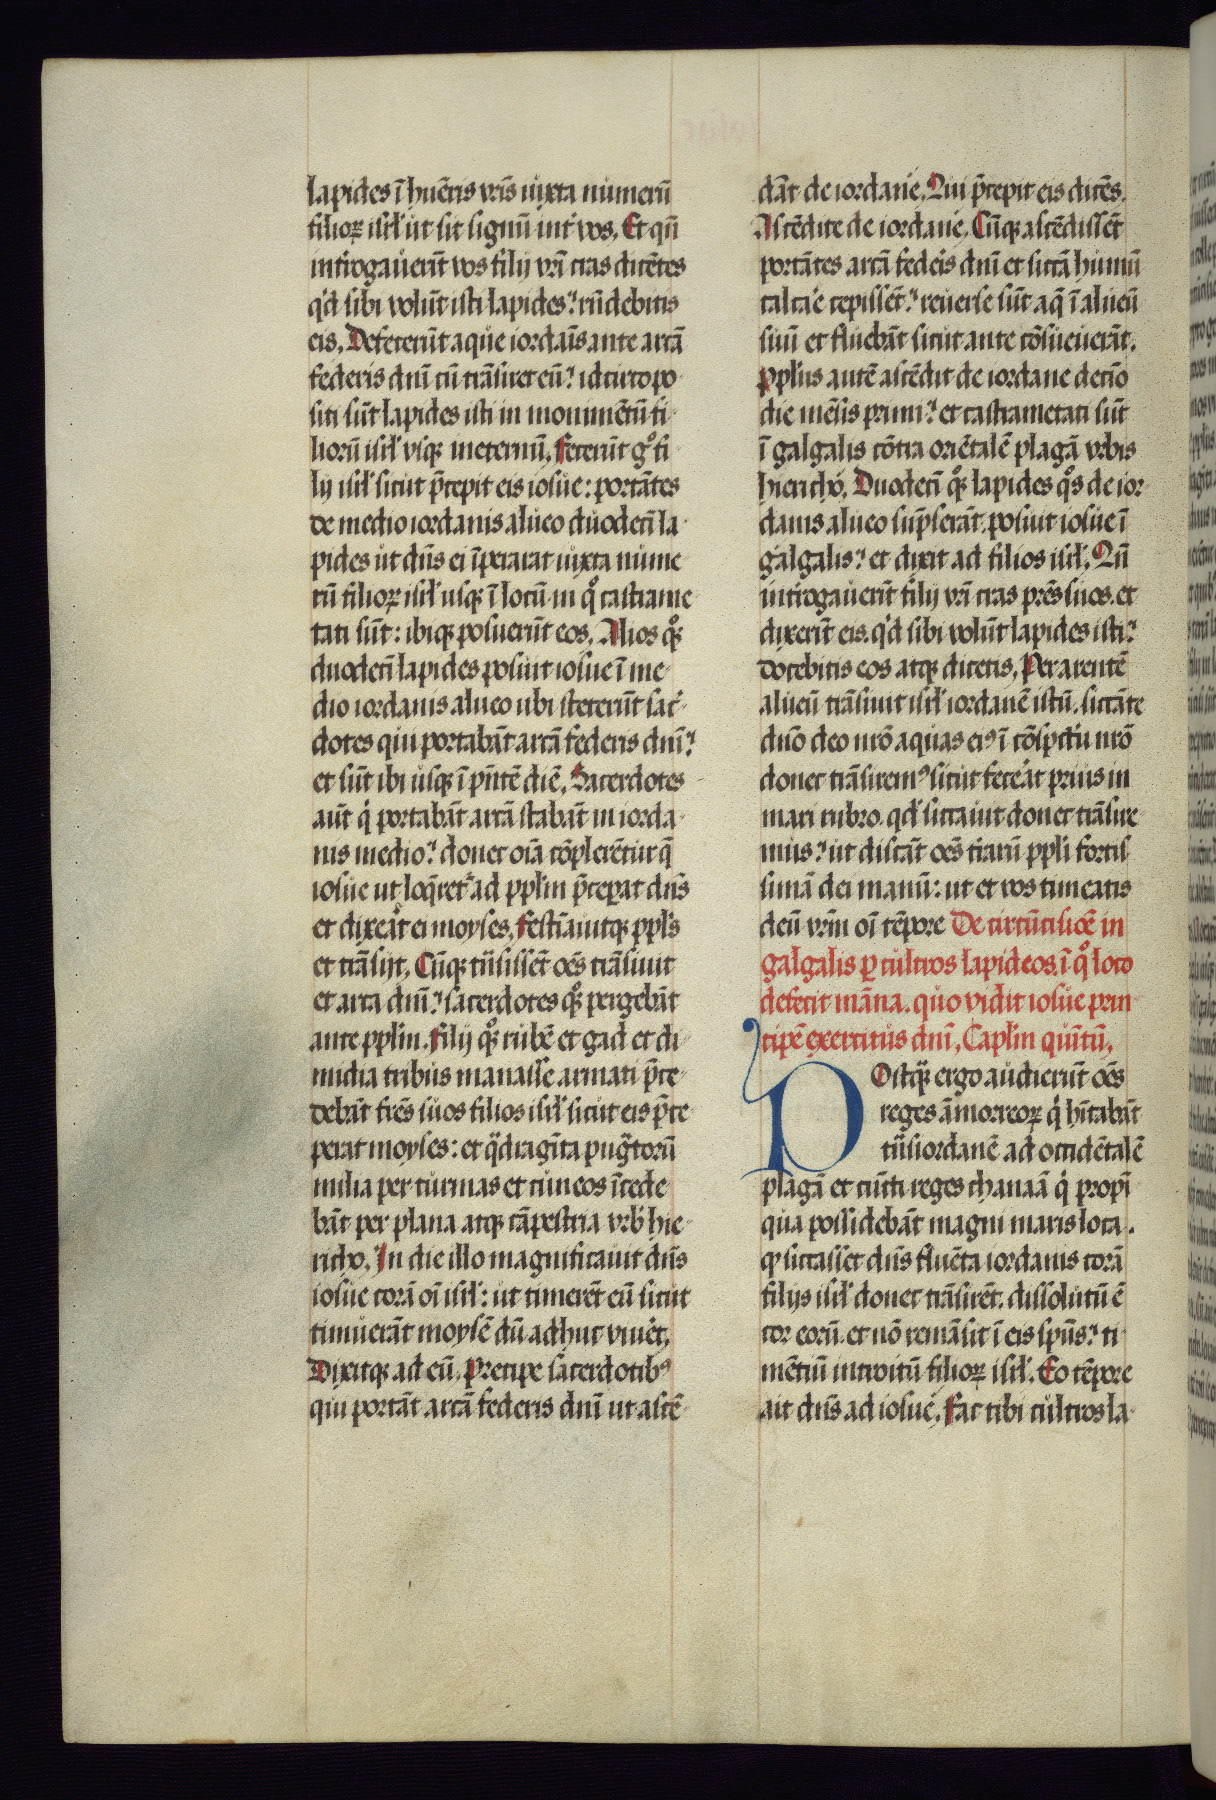 lapides ī hūeris vr̄is iuxta numerū
filioꝝ isrl' ut sit signū int' vos. Et qn̄
int'rogauerīt vos filij vr̄i cras dicētes
q'd sibi volūt isti lapides? rn̄debitis
eis. Defecerūt aque iordaīs ante arcā
federis dn̄i cū trāsiret eū? idcirco po
siti sūt lapides isti in monimētū fi
liorū isrl' vsqꝫ ineternū. Fecerūt g° fi
lij isrl' sicut p̄cepit eis iosue: portātes
de medio iordanis alueo duodecī la
pides ut dn̄s ei īperarat iuxta nume
rū filioꝝ isrl' usqꝫ ī locū in q° castrame
tati sūt: ibiqꝫ posuerūt eos. Alios qꝫ
duodecī lapides posuit iosue ī me
dio iordanis alueo ubi steterūt sac'
dotes qui portabāt arcā federis dn̄i?
et sūt ibi usqꝫ ī pn̄tē diē. Sacerdotes
aūt q' portabāt arcā stabāt in iorda
nis medio? donec oīa cōplerētur q̄
iosue ut loq̄ret' ad pplm p̄ceꝑat dn̄s
et dixeāt ei moyses. Festīauitqꝫ ppl's
et trāsijt. Cūqꝫ tn̄sissēt oēs trāsiuit
et arca dn̄i? sacerdotes qꝫ pergebāt
ante pplm. Filij qꝫ rubē et gad et di
midia tribus manasse armati p̄ce
debāt frēs suos filios isrl' sicut eis p̄ce
perat moyses: et q̄dragīta pug̃torū
milia per turmas et cuneos īcede
bāt per plana atqꝫ cāpestria vrb' hie
richo. In die illo magnificauit dn̄s
iosue corā oī isrl': ut timerēt eū sicut
timuerāt moysē dū adhuc viuēt.
Dixitqꝫ ad eū. Precipe sacerdotibꝰ
qui portāt arcā federis dn̄i ut ascē
dāt de iordane. Qui p̄cepit eis dicēs.
Ascēdite de iordane. Cūqꝫ ascēdissēt
portātes arcā federis dn̄i et siccā humū
calcare cepissēt? reuerse sūt aq̄ ī alueū
suū et fluebāt sicut ante cōsueuerāt.
Ppl's autē ascēdit de iordane decīo
die mēsis primi? et castrametati sūt
ī galgalis cōtra oriētalē plagā vrbis
hiericho. Duodecī qꝫ lapides q°s de ior
danis alueo sūpserāt posuit iosue ī
galgalis? et dixit ad filios isrl'. Qn̄
int'rogauerīt filij vr̄i cras prēs suos. et
dixerīt eis. q'd sibi volūt lapides isti?
docebitis eos atqꝫ dicetis. Per arentē
alueū trāsiuit isrl' iordanē istū. siccāte
dn̄o deo nr̄o aquas eiꝰ ī cōspc̄tu nr̄o
donec trāsiremꝰ sicut feceāt prius in
mari rubro. qd' siccauit donec trāsire
mus? ut discāt oēs tr̄arū ppl'i fortis
simā dei manū: ut et vos timeatis
deū vrm̄ oī tēpore De circūcisiōe in
galgalis ꝑ cultros lapideos. ī q° loco
defecit māna. quo vidit iosue prin
cipē exercitus dn̄i. Caplm quītū.
POstq̄ꝫ ergo audierunt oēs
reges āmorreoꝝ q' hītabāt
tn̄siordanē ad occidētalē
plagā et cūcti reges chanaā q' propī
qua possidebāt magni maris loca.
qꝫ siccasset dn̄s fluēta iordanis corā
filijs isrl' donec trāsirēt. dissolutū ē
cor eorū. et nō remāsit ī eis spūs? ti
mētiū introitū filioꝝ isrl'. Eo tēpore
ait dn̄s ad iosue. Fac tibi cultros la